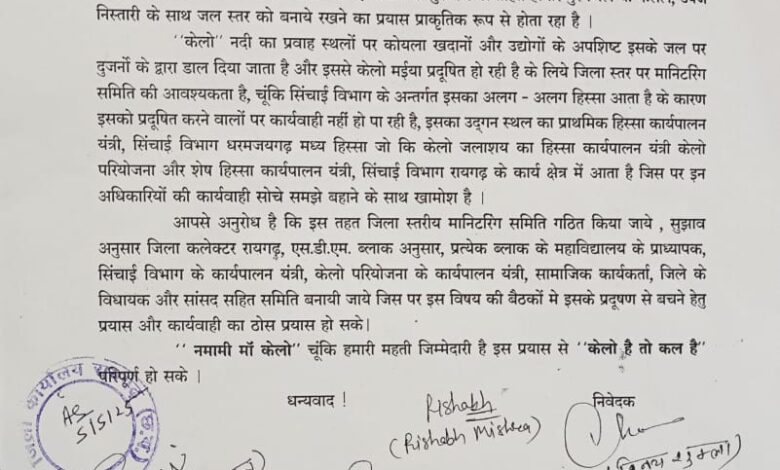 निस्तारी के साथ जल स्तर को बनाये रखने का प्रयास प्राकृतिक रूप से होता रहा है ।
“केलो” नदी का प्रवाह स्थलों पर कोयला खदानों और उद्योगों के अपशिष्ट इसके जल पर
दुजर्नो के द्वारा डाल दिया जाता है और इससे केलो मईया प्रदूषित हो रही है के लिये जिला स्तर पर मानिटरिंग
समिति की आवश्यकता है, चूंकि सिंचाई विभाग के अन्तर्गत इसका अलग - अलग हिस्सा आता है के कारण
इसको प्रदूषित करने वालों पर कार्यवाही नहीं हो पा रही है, इसका उद्गन स्थल का प्राथमिक हिस्सा कार्यपालन
यंत्री, सिंचाई विभाग धरमजयगढ़ मध्य हिस्सा जो कि केलो जलाशय का हिस्सा कार्यपालन यंत्री केलो
परियोजना और शेष हिस्सा कार्यपालन यंत्री, सिंचाई विभाग रायगढ़ के कार्य क्षेत्र में आता है जिस पर इन
अधिकारियों की कार्यवाही सोचे समझे बहाने के साथ खामोश है ।
आपसे अनुरोध है कि इस तहत जिला स्तरीय मानिटरिंग समिति गठित किया जाये , सुझाव
अनुसार जिला कलेक्टर रायगढ़, एस.डी.एम. ब्लाक अनुसार, प्रत्येक ब्लाक के महाविद्यालय के प्राध्यापक,
सिंचाई विभाग के कार्यपालन यंत्री, केलो परियोजना के कार्यपालन यंत्री, सामाजिक कार्यकर्ता, जिले के
विधायक और सांसद सहित समिति बनायी जाये जिस पर इस विषय की बैठकों मे इसके प्रदूषण से बचने हेतु
प्रयास और कार्यवाही का ठोस प्रयास हो सके।
“ नमामी माँ केलो” चूंकि हमारी महती जिम्मेदारी है इस प्रयास से “केलो है तो कल है”
परिपूर्ण हो सके ।
धन्यवाद !
निवेदक
Rishabh
(Rishabh Mishra)
5/5/25
कार्यालय